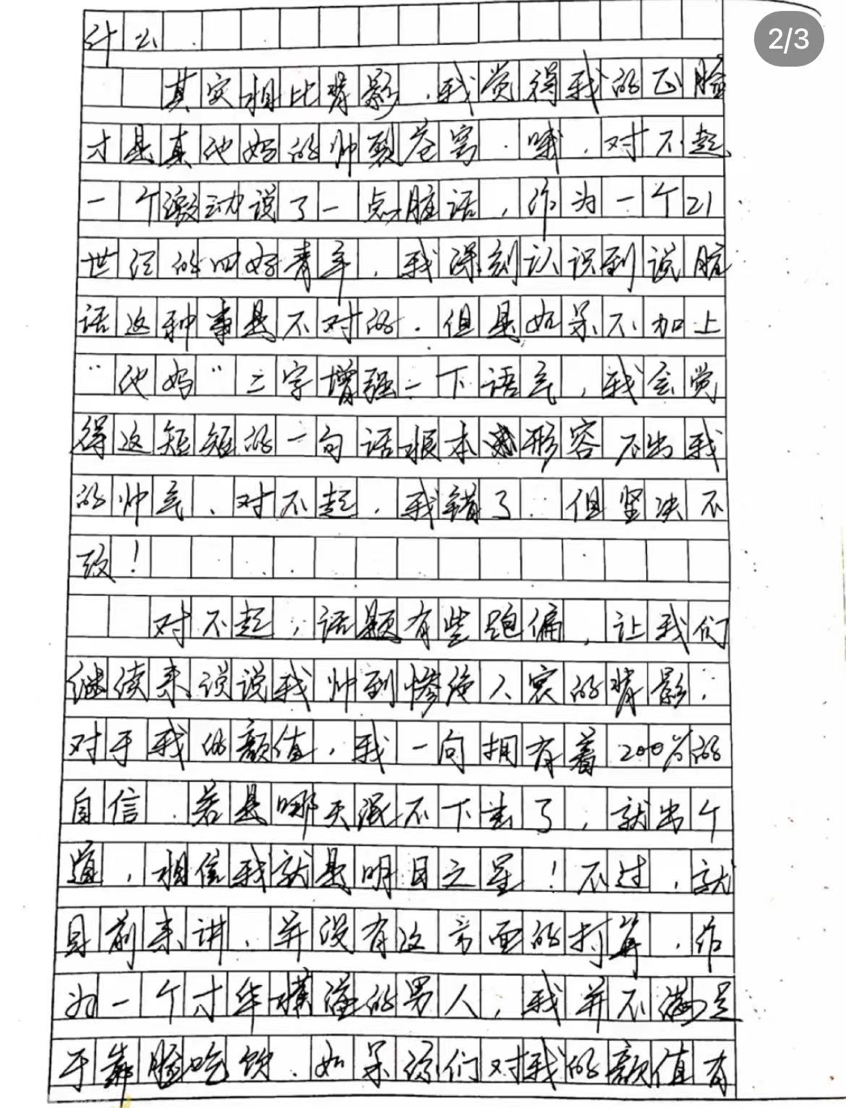 2/3
什么.
其实相比背影,我觉得我的正脸
才是真他妈的帅裂苍穹.哦,对不起
一个激动说了一点脏话,作为一个21
世纪的四好青年,我深刻认识到说脏
话这种事是不对的.但是如果不加上
“他妈”二字增强一下语气,我会觉
得这短短的一句话根本形容不出我
的帅气、对不起,我错了.但坚决不
改!
对不起,话题有些跑偏,让我们
继续来谈谈我帅到惨绝人寰的背影.
对于我的颜值,我一向拥有着200%的
自信.若是哪天混不下去了,就出个
道,相信我就是明日之星!不过,就
目前来讲,并没有这方面的打算,作
为一个才华横溢的男人,我并不满足
于靠脸吃饭.如果你们对我的颜值有